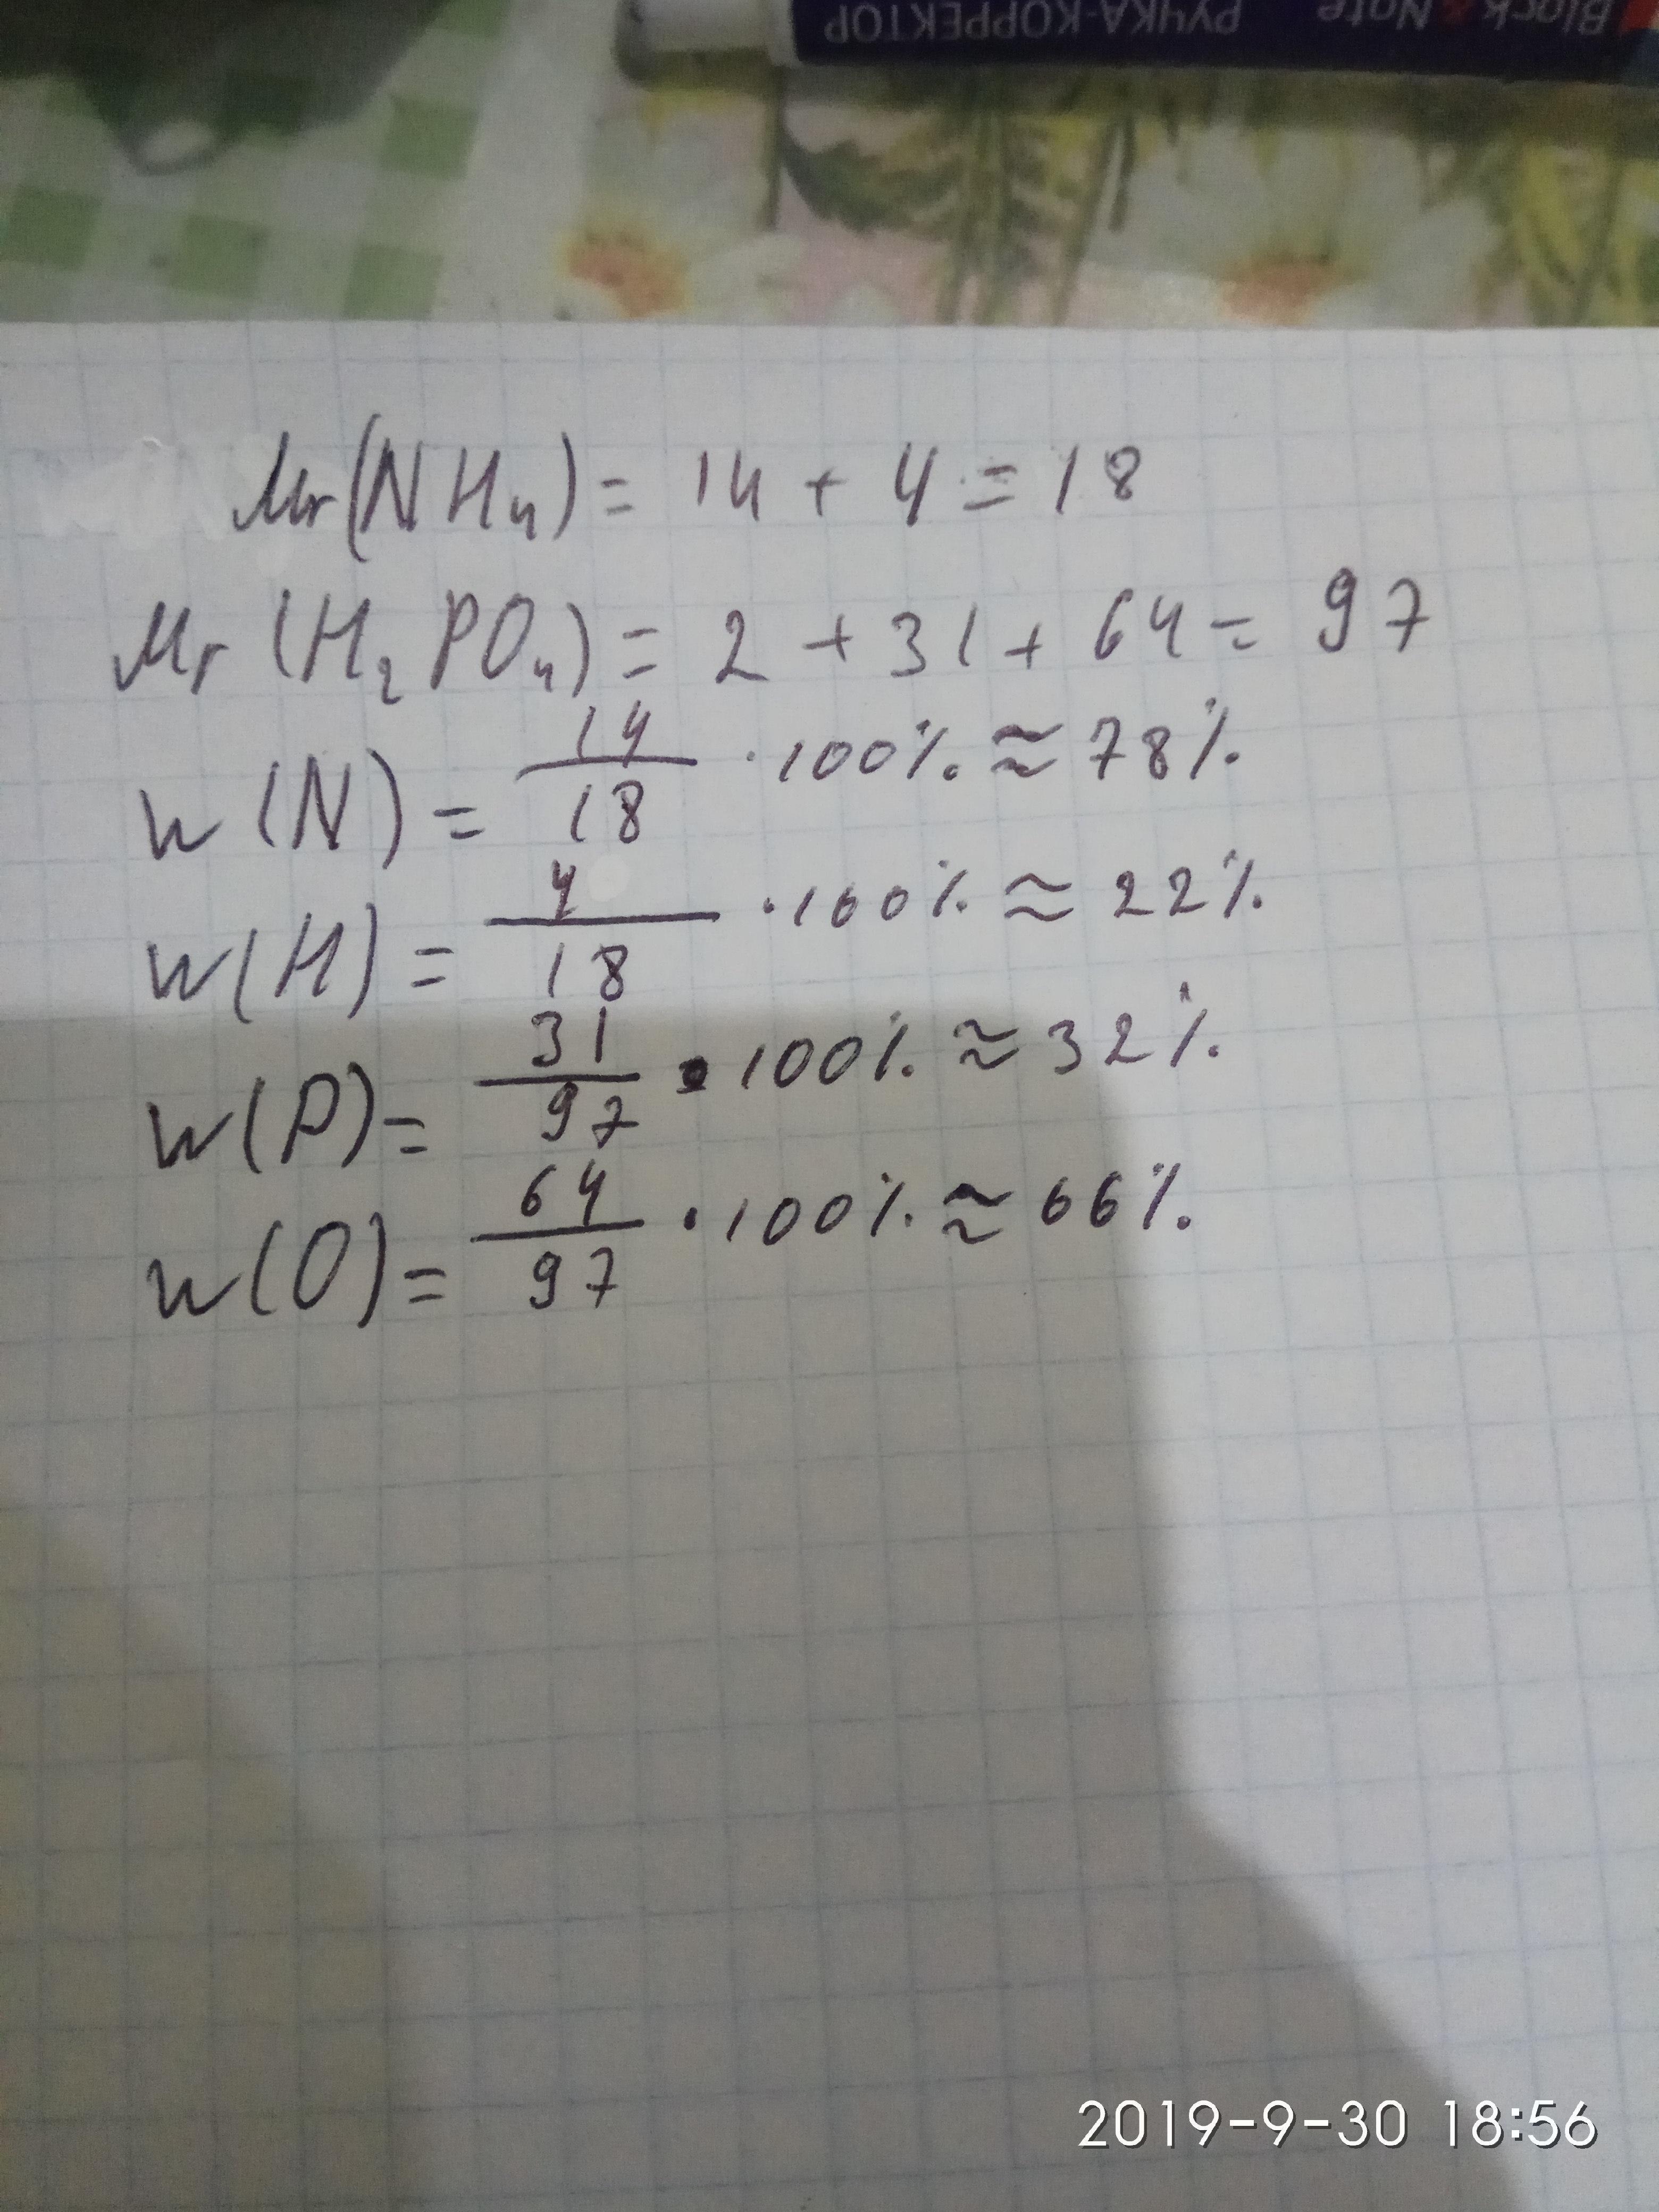 Block & Note РУЧКА-КОРРЕКТОР
Mr(NH₄) = 14 + 4 = 18
Mr (H₂PO₄) = 2 + 31 + 64 = 97
w (N) = 14/18 · 100% ≈ 78%
w(H) = 4/18 · 100% ≈ 22%
w(P) = 31/97 · 100% ≈ 32%
w(O) = 64/97 · 100% ≈ 66%
2019-9-30 18:56